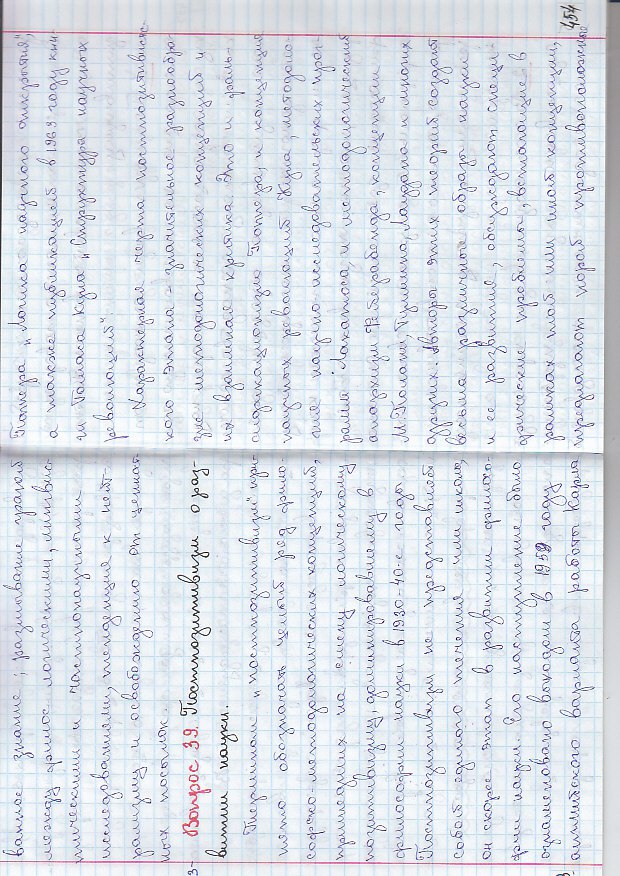 ванное знание; размывание граней
между филос. логическими, лингвис-
тическими и частнонаучными
исследованиями, тенденция к нейт-
рализму и освобождению от ценност-
ных посылок.
Вопрос 39. Постпозитивизм о раз-
витии науки.
Термином "постпозитивизм" при-
нято обозначать целый ряд фило-
софско-методологических концепций,
пришедших на смену логическому
позитивизму, доминировавшему в
философии науки в 1930-40-е годы.
Постпозитивизм не представляет
собой единого течения или школы,
он скорее этап в развитии филосо-
фии науки. Его наступление было
ознаменовано выходом в 1959 году
английского варианта работы Карла
Поппера "Логика научного открытия",
а также публикацией в 1963 году кни-
ги Томаса Куна "Структура научных
революций".
Характерная черта постпозитивистс-
кого этапа - значительное разнообра-
зие методологических концепций и
их взаимная критика. Это и фаль-
сификационизм Поппера, и концепция
научных революций Куна, методоло-
гия научно-исследовательских прог-
рамм Лакатоса, и методологический
анархизм Фейерабенда, концепции
М. Полани, Тулмина, Лаудана и многих
других. Авторы этих теорий создают
весьма различные образы науки
и ее развития, обсуждают специ-
фические проблемы, встающие в
рамках той или иной концепции,
предлагают порой противоположные
454